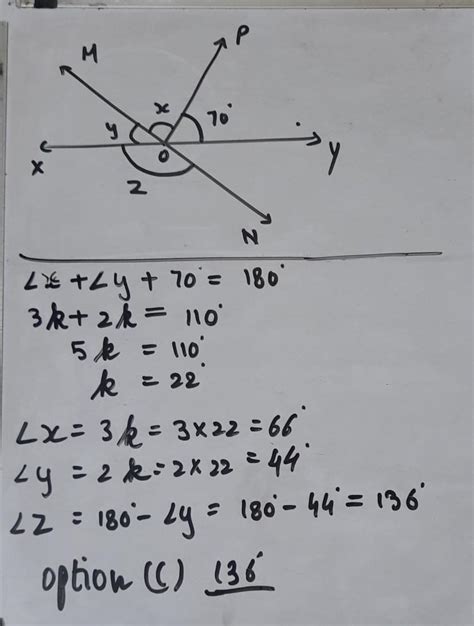 M
P
x
70°
y
X
O
Y
Z
N
∠x + ∠y + 70° = 180°
3k + 2k = 110°
5k = 110°
k = 22°
∠x = 3k = 3×22 = 66°
∠y = 2k = 2×22 = 44°
∠Z = 180° - ∠y = 180° - 44° = 136°
option (C) 136°